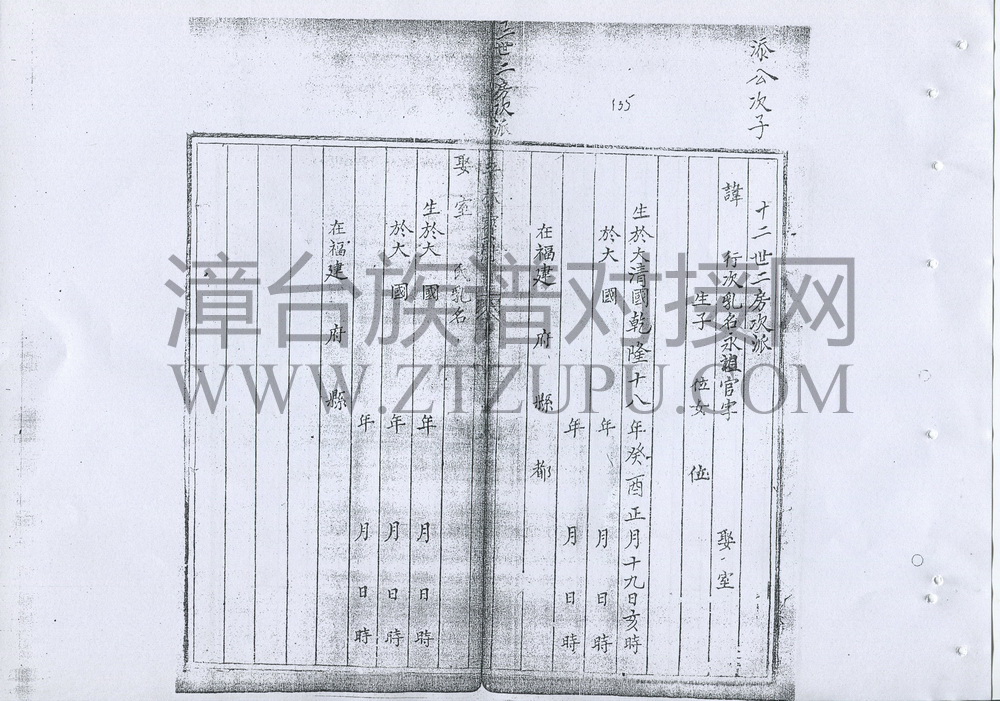 添公次子
135
十二世二房次派
諱 行次乳名永諠官字 娶室
生子 位女 位
生於大清國乾隆十八年癸酉正月十九日亥時
於大 國 年 月 日 時
年 月 日 時
在福建 府 縣 都
世二房次派
娶室 氏乳名
生於大 國 年 月 日 時
於大 國 年 月 日 時
年 月 日 時
在福建 府 縣
漳台族谱对接网
WWW.ZTZUPU.COM